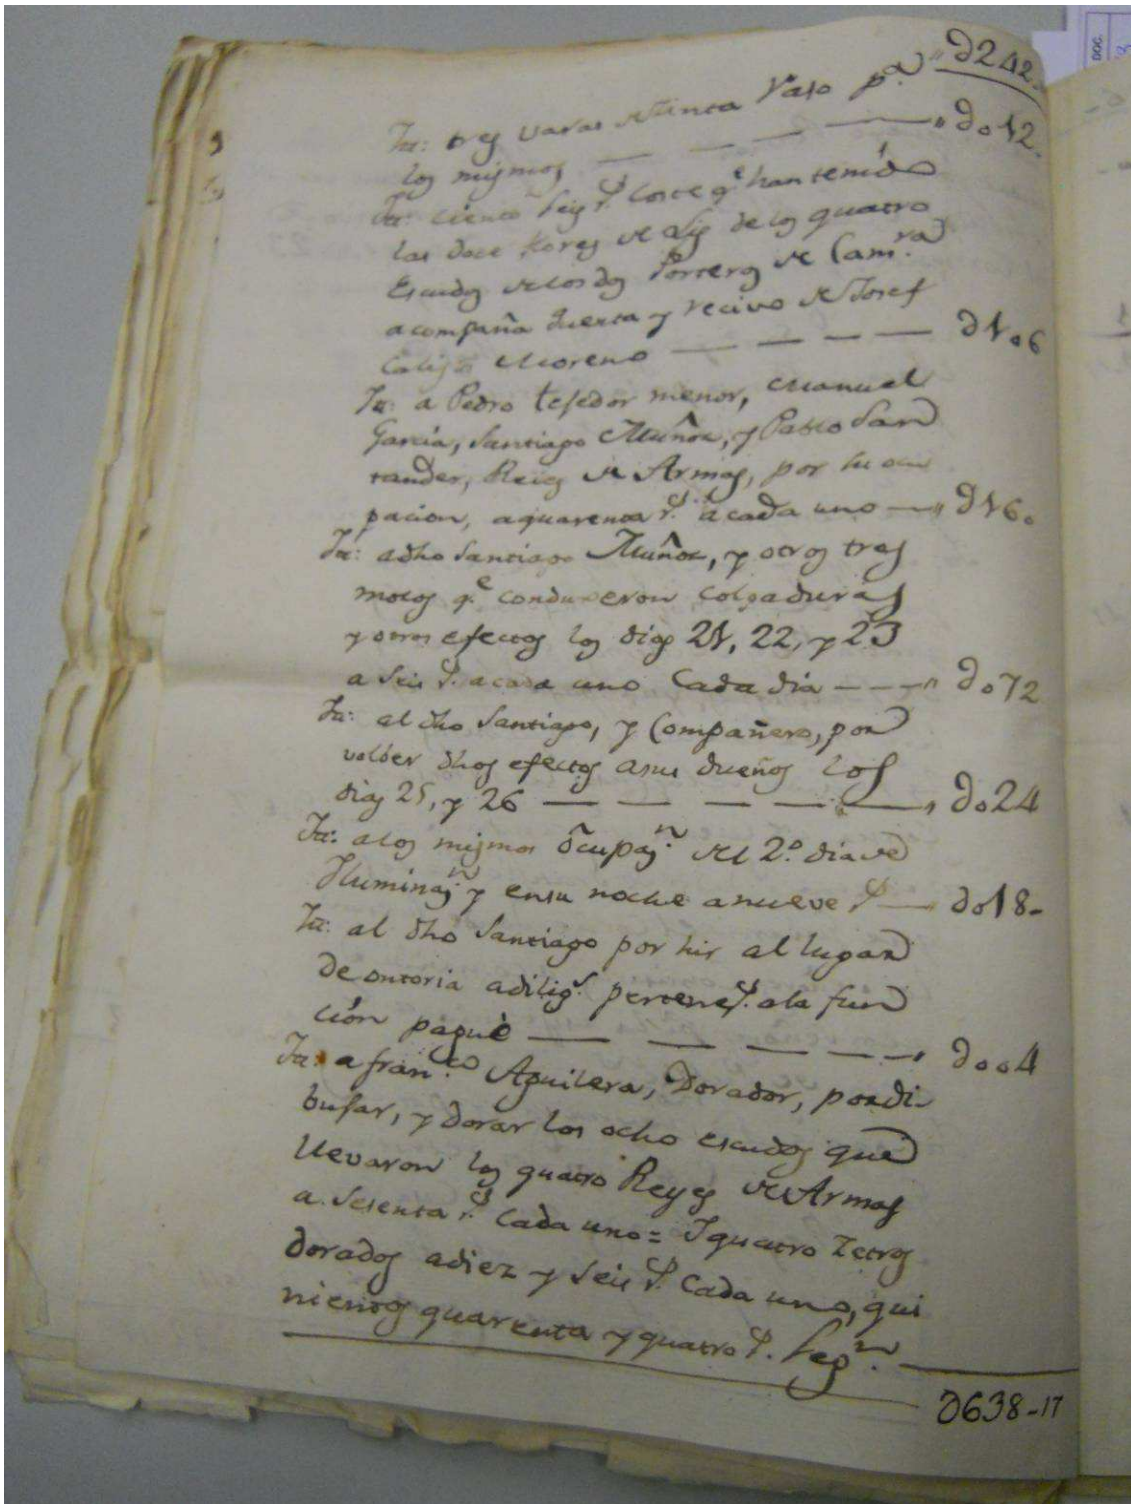 "D242
Itt: tres varas de cinta Raso p.a
los mismos — — — " Do12.
Itt: ciento seis r.s coste q.e han tenido
las doce flores de Lis de los quatro
Escudos de los dos Porteros de Cam.ra
acompaña Quenta y recivo de Josef
Moreno — — — — D1o6
Itt: a Pedro tejedor menor, Manuel
Garcia, Santiago Muñoz, y Pablo San
tander, Reies de Armas, por su ocu
pacion, a quarenta r.s a cada uno — " D16o
Itt: a dho Santiago Muñoz, y otros tres
mozos q.e conduxeron Colgaduras
y otros efectos los dias 21, 22, y 23
a seis r.s a cada uno Cada dia — — — " Do72
Itt: al dho Santiago, y Compañero, por
volver dhos efectos a sus dueños los
dias 25, y 26 — — — — — " Do24
Itt: a los mismos ôcupaz.n del 2.o dia de
Iluminaz.n y en su noche a nueve r.s — Do18-
Itt: al dho Santiago por hir al lugar
de ontoria a dilig.s pertenez.s a la fun
ción paguè — — — — — " Doo4
Itt: a fran.co Aguilera, Dorador, por di-
bujar, y dorar los ocho escudos que
llevaron los quatro Reyes de Armas
a sesenta r.s Cada uno = I quatro Zetros
dorados a diez y seis r.s Cada uno, qui
nientos quarenta y quatro r.s seg.n
D638-17